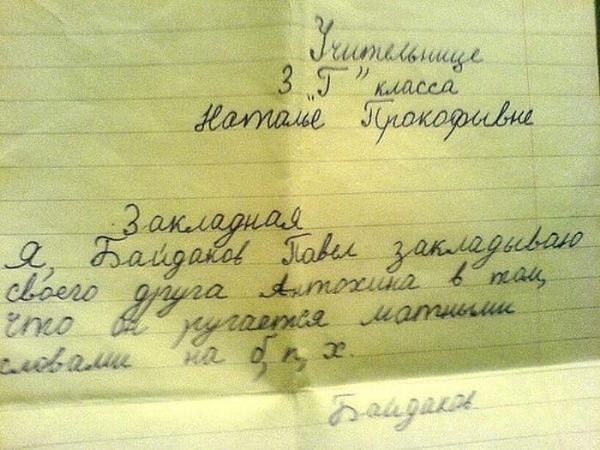 Учительнице
3 „Г" класса
Наталье Прокофивне
Закладная
Я, Байдаков Павел закладываю
своего друга Антохина в том,
что он ругается матными
словами на б, п, х.
Байдаков